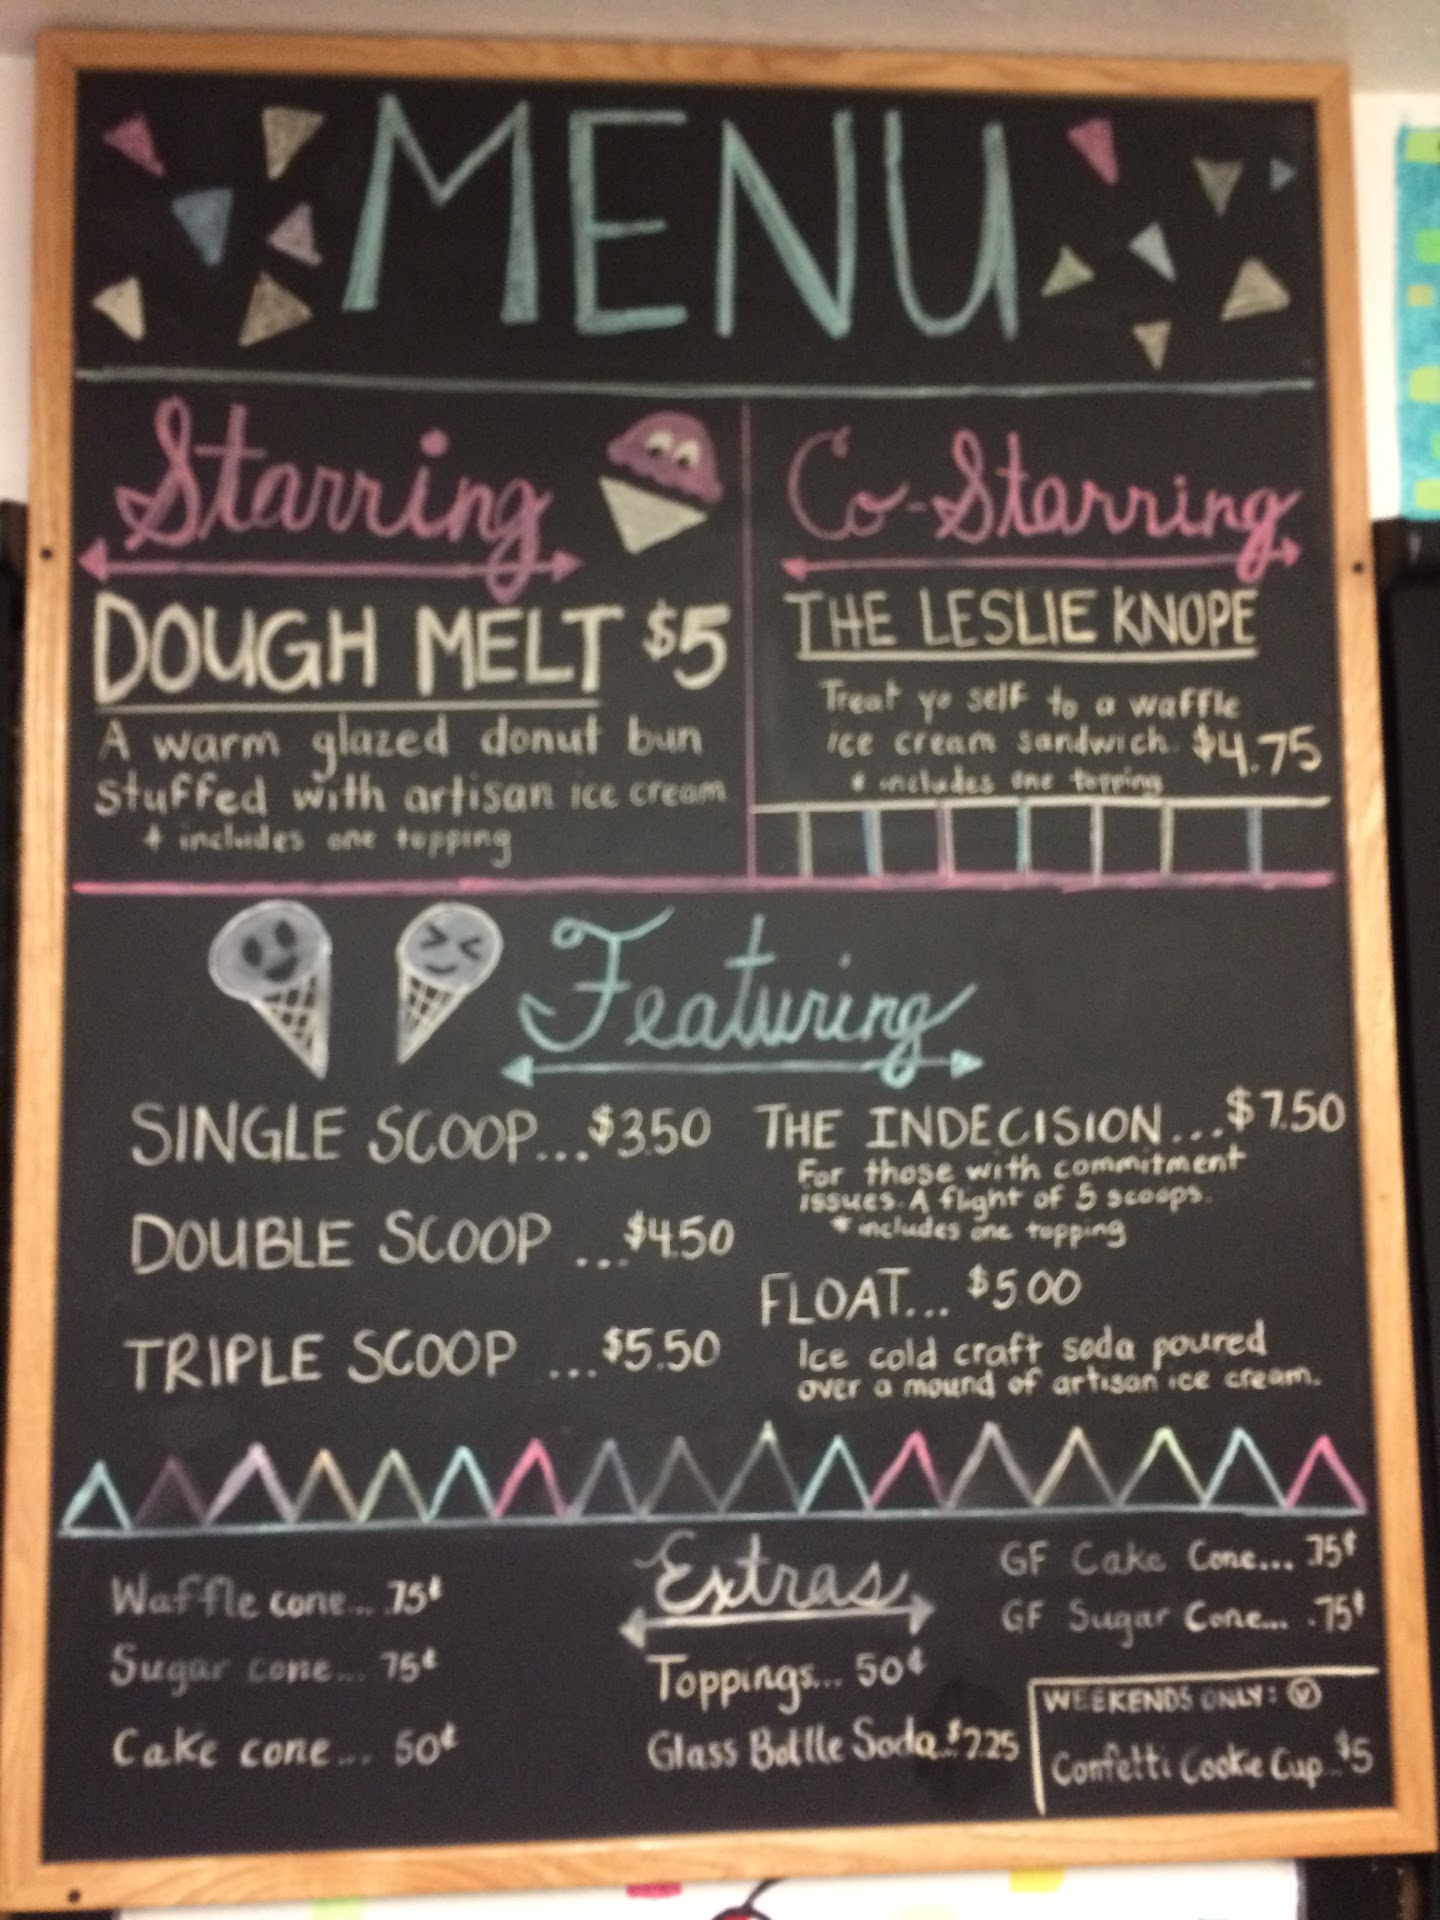 MENU
Starring
DOUGH MELT $5
A warm glazed donut bun
stuffed with artisan ice cream
* includes one topping
Co-Starring
THE LESLIE KNOPE
Treat yo self to a waffle
ice cream sandwich. $4.75
* includes one topping
Featuring
SINGLE SCOOP...$3.50
DOUBLE SCOOP ...$4.50
TRIPLE SCOOP ...$5.50
THE INDECISION...$7.50
For those with commitment
issues. A flight of 5 scoops.
* includes one topping
FLOAT... $5.00
Ice cold craft soda poured
over a mound of artisan ice cream.
Extras
Waffle cone... .75¢
Sugar cone... 75¢
Cake cone... 50¢
Toppings... 50¢
Glass Bottle Soda...$2.25
GF Cake Cone... .75¢
GF Sugar Cone... .75¢
WEEKENDS ONLY: Ⓥ
Confetti Cookie Cup...$5